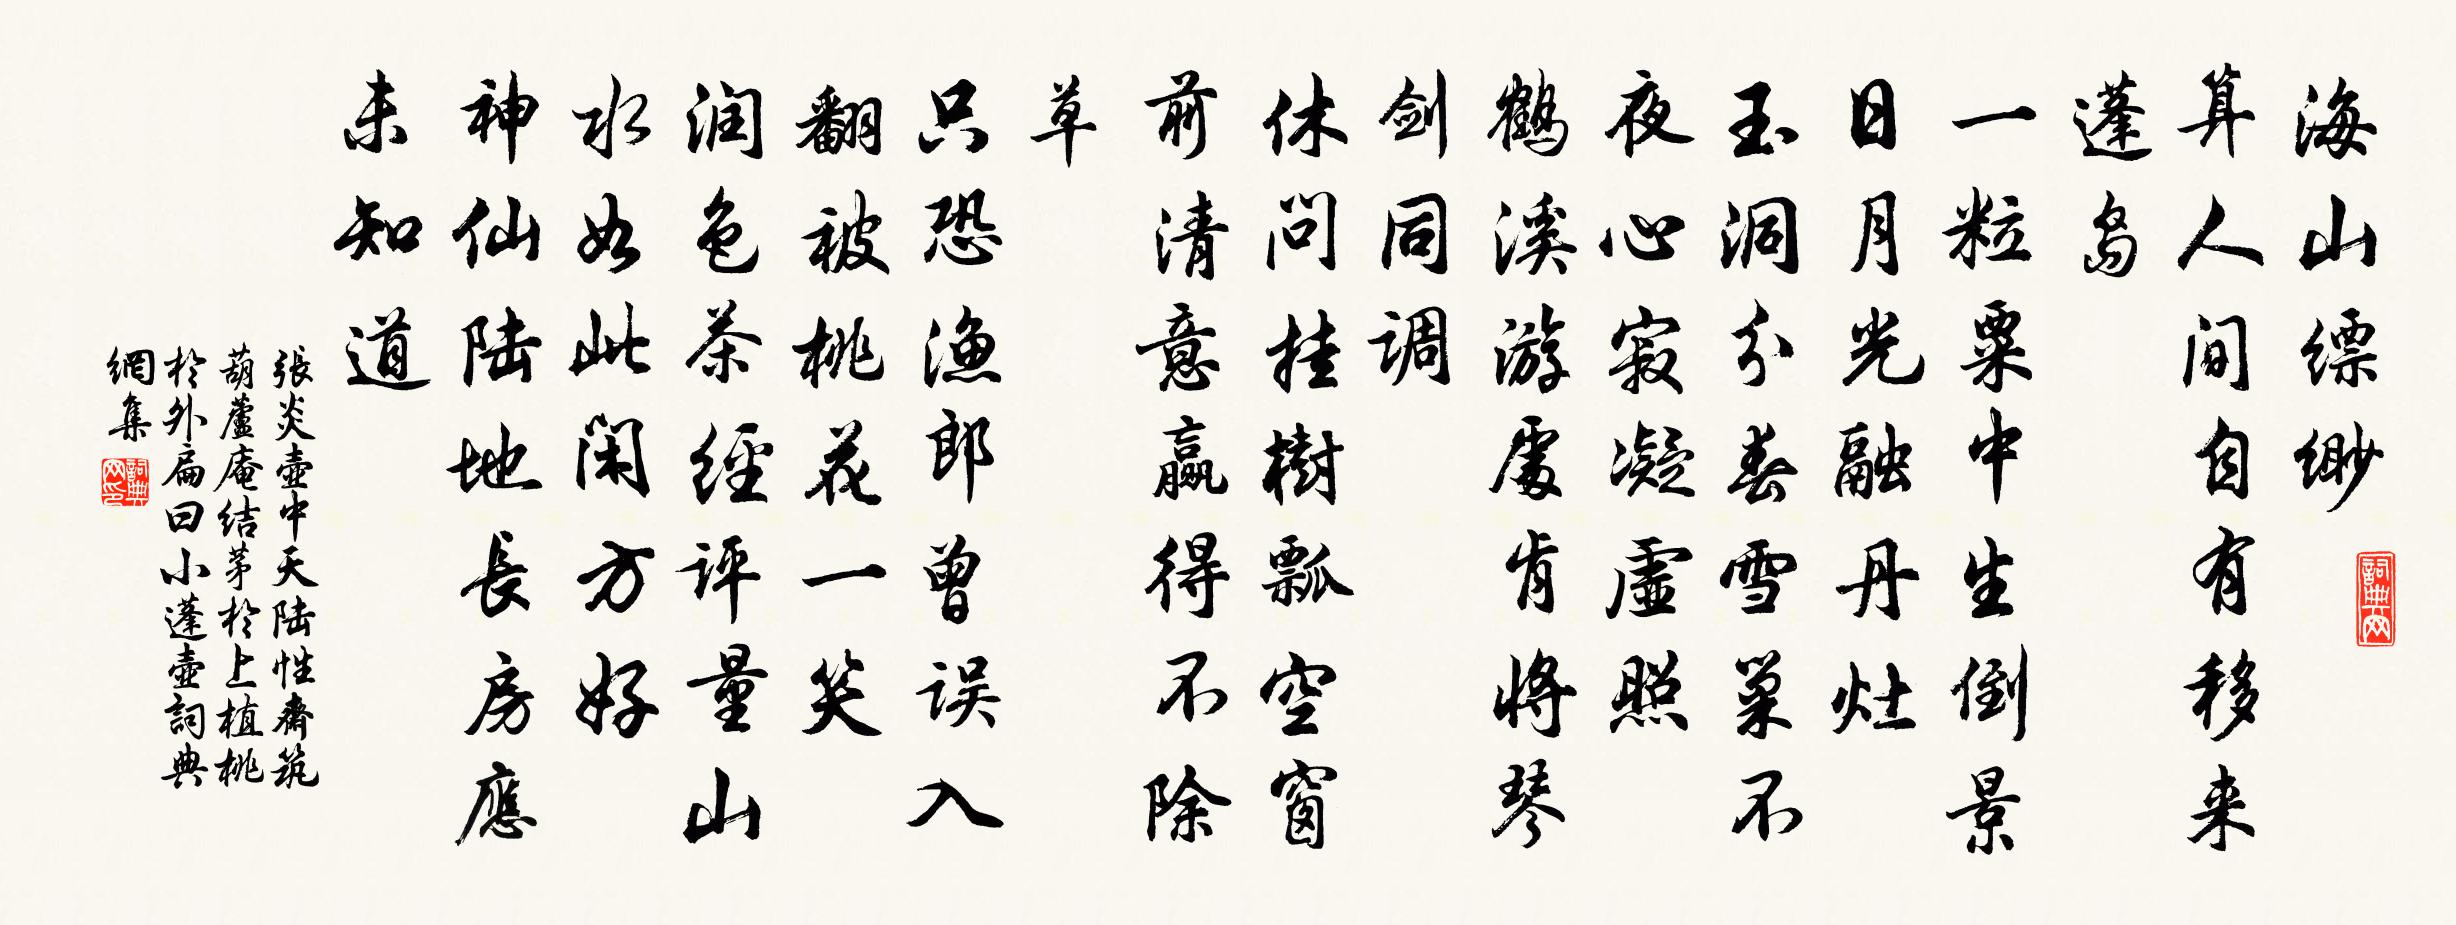 海山缥缈
算人间自有移来
蓬岛
一粒粟中生倒景
日月光融丹灶
玉洞分春雪巢不
夜心寂凝虚照
鹤溪游處肯将琴
剑同调
休问挂樹瓢空窗
前清意赢得不除
草
只恐渔郎曾误入
翻被桃花一笑
润色茶经评量山
水如此闲方好
神仙陆地長房應
未知道
張炎壺中天陆性齋筑
葫蘆庵结茅於上植桃
於外扁曰小蓬壺詞典
網集
詞典网
詞典网印